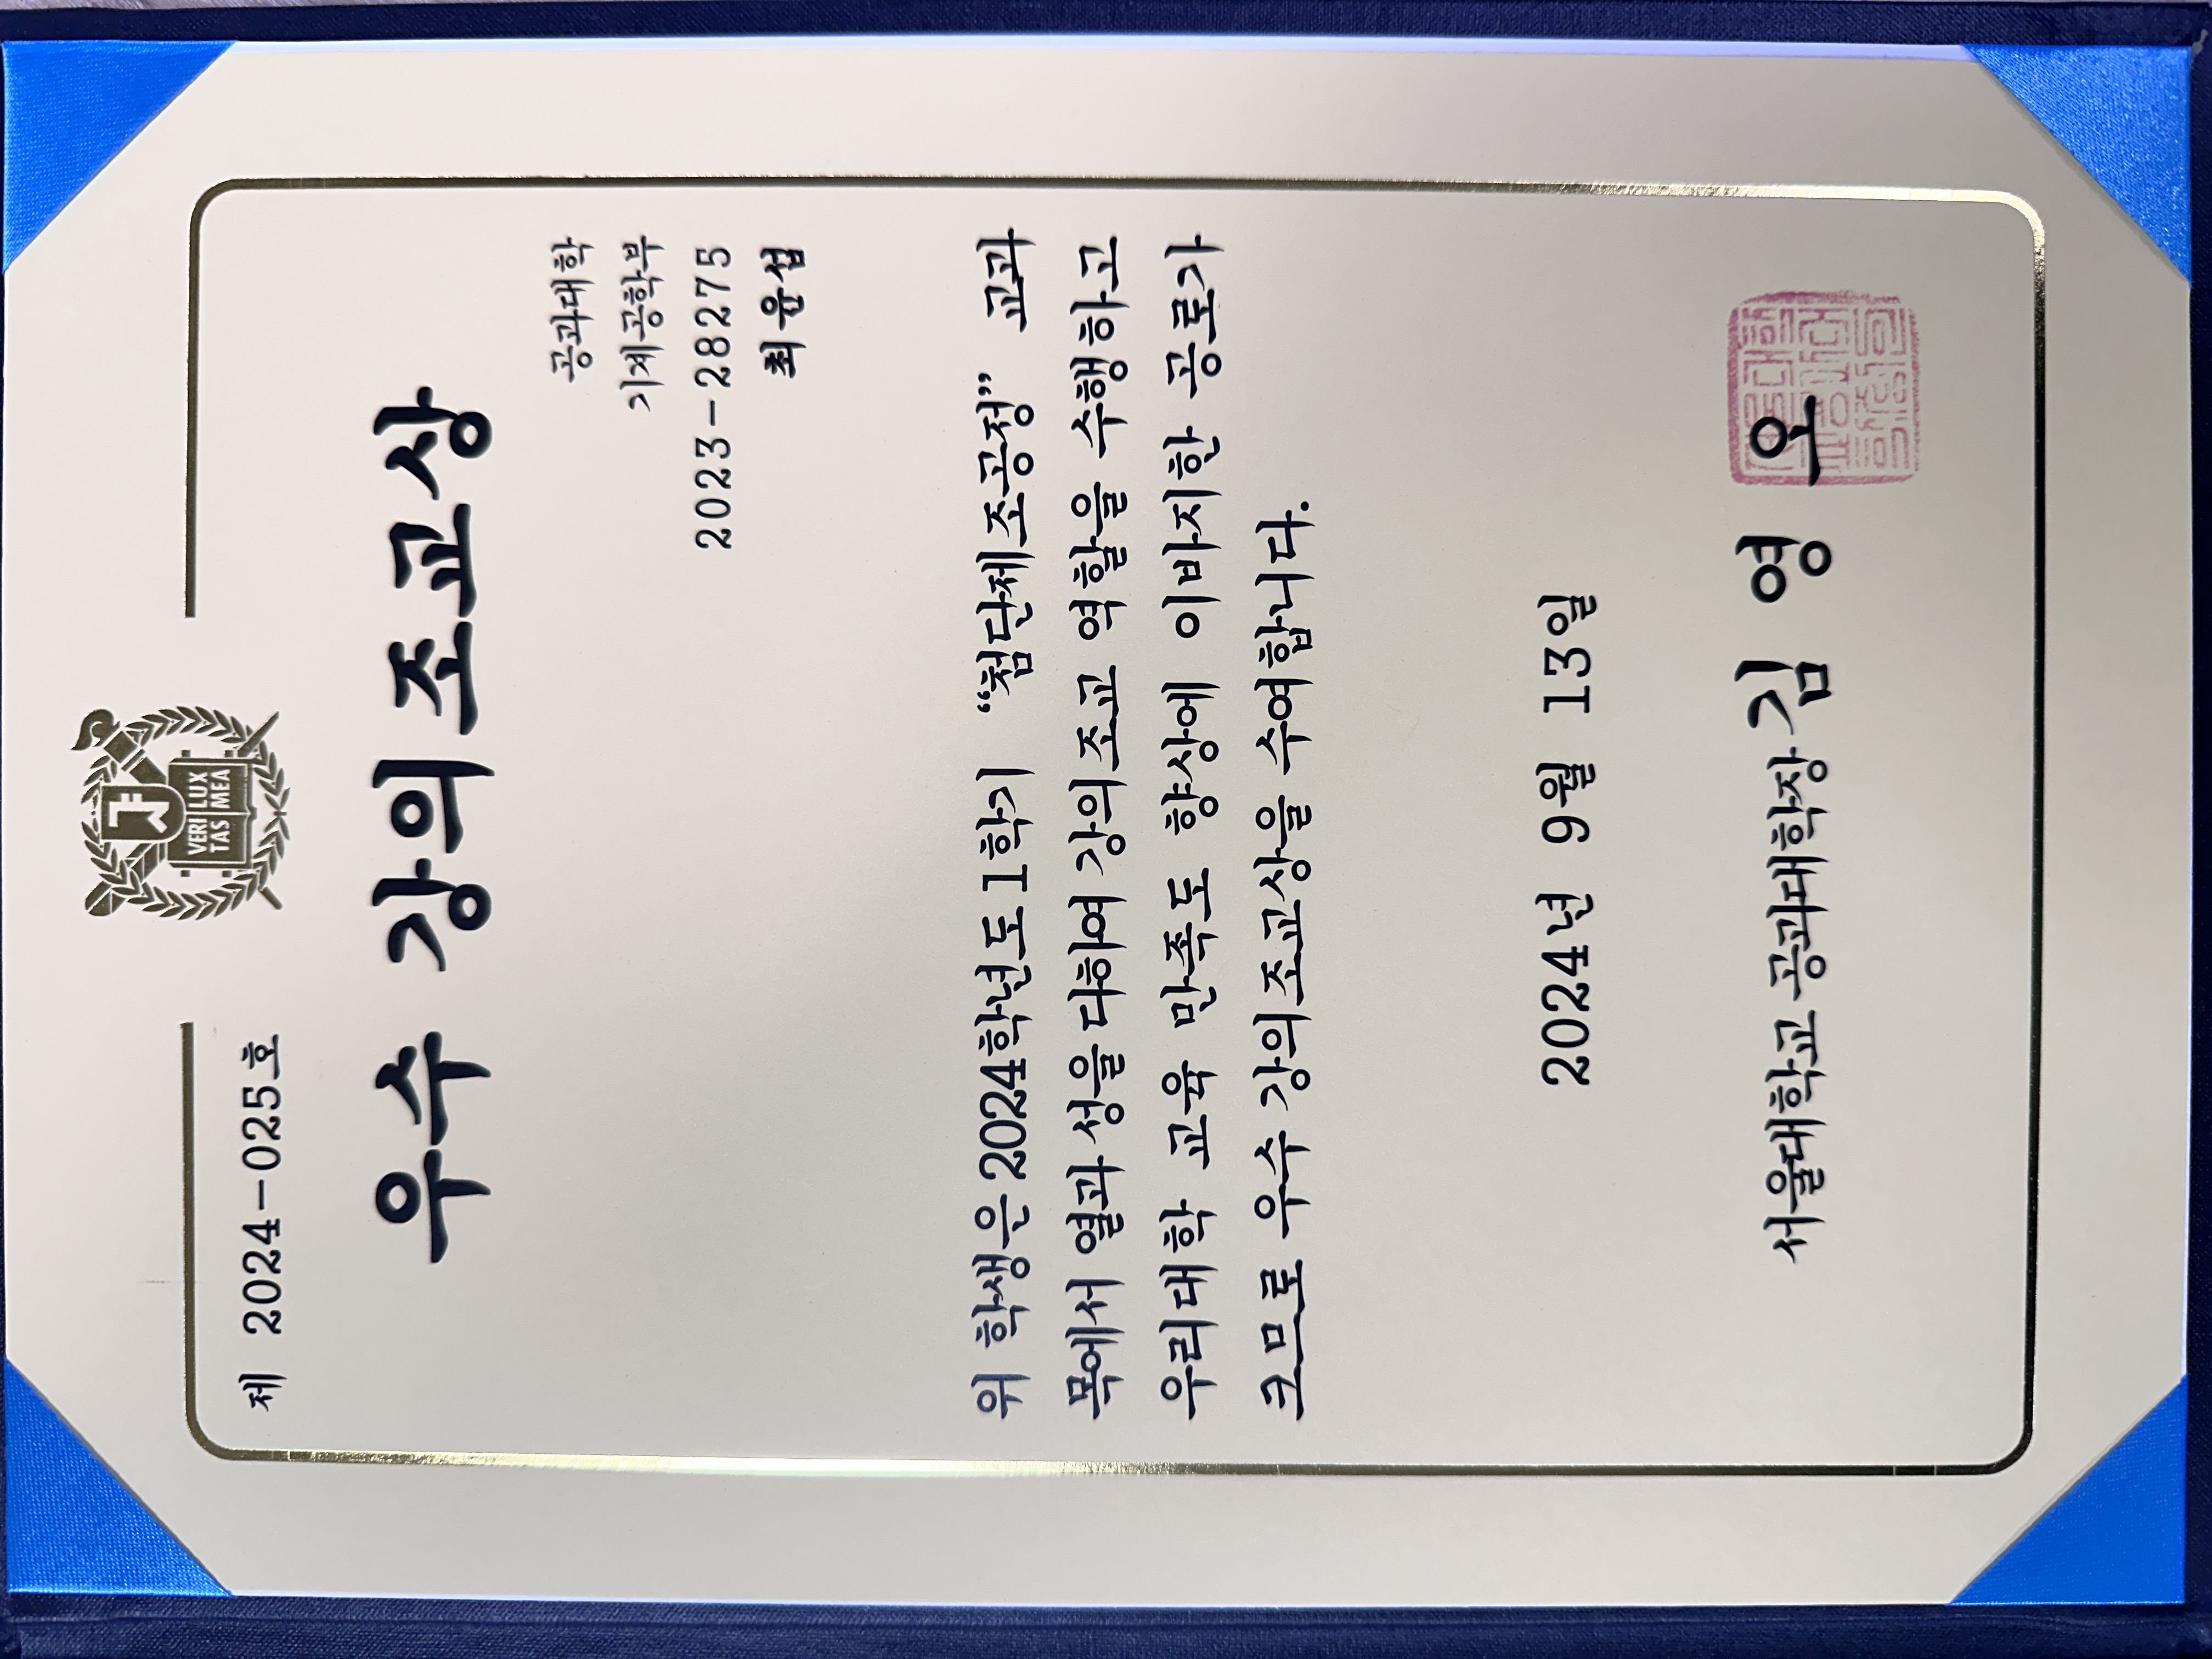 제 2024-025호
VERI LUX
TAS MEA
우수 강의조교상
공과대학
기계공학부
2023-28275
최윤섭
위 학생은 2024학년도 1학기 “첨단제조공정” 교과
목에서 열과 성을 다하여 강의조교 역할을 수행하고
우리대학 교육 만족도 향상에 이바지한 공로가
크므로 우수 강의조교상을 수여합니다.
2024년 9월 13일
서울대학교 공과대학장 김 영 오